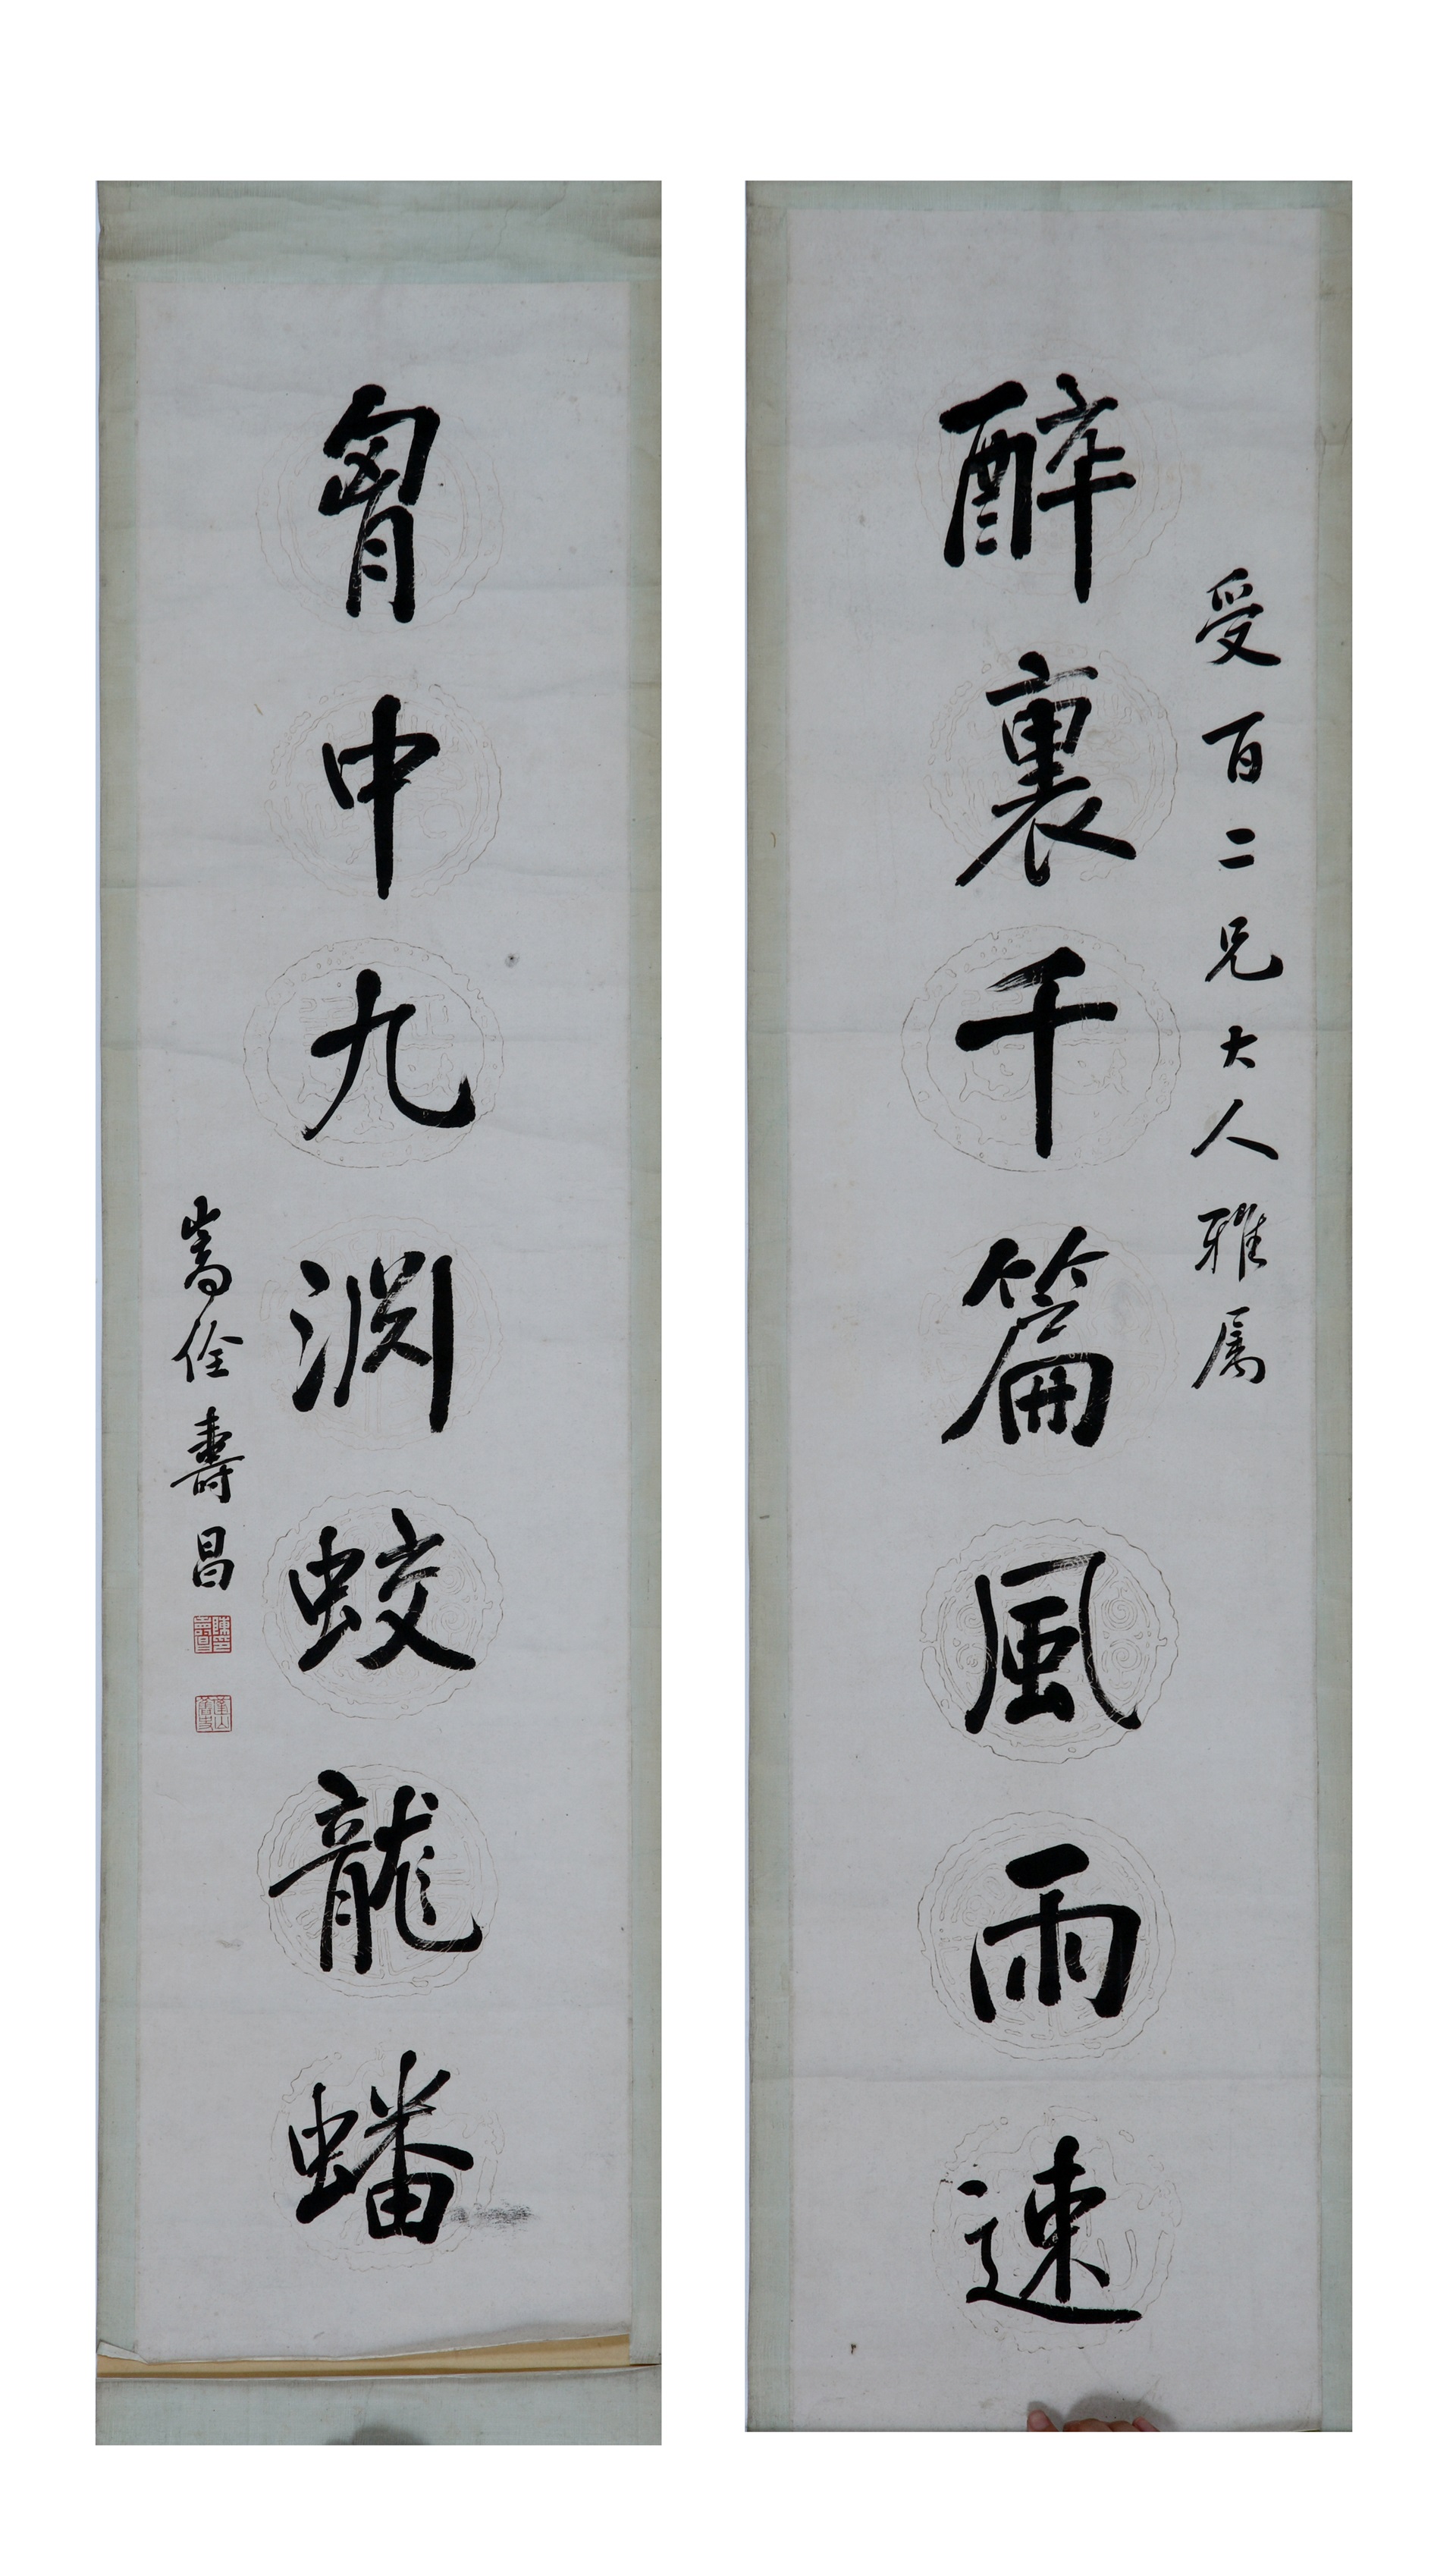 受百二兄大人雅属
醉裏千篇風雨速
胷中九淵蛟龍蟠
嵩佺壽昌